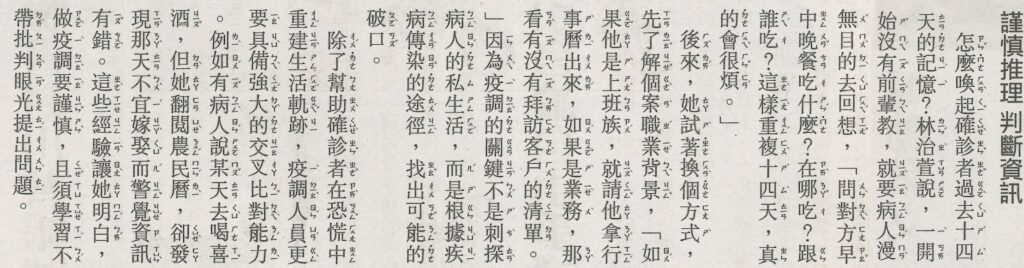 謹慎推理 判斷資訊
怎麼喚起確診者過去十四
天的記憶？林治萱說，一開
始沒有前輩教，就要病人漫
無目的去回想，「問對方早
中晚餐吃什麼？在哪吃？跟
誰吃？這樣重複十四天，真
的會很煩。」
後來，她試著換個方式，
先了解個案職業背景，「如
果他是上班族，就請他拿行
事曆出來，如果是業務，那
看有沒有拜訪客戶的清單。
」因為疫調的關鍵不是刺探
病人的私生活，而是根據疾
病傳染的途徑，找出可能的
破口。
除了幫助確診者在恐慌中
重建生活軌跡，疫調人員更
要具備強大的交叉比對能力
。例如有病人說某天去喝喜
酒，但她翻閱農民曆，卻發
現那天不宜嫁娶而警覺資訊
有錯。這些經驗讓她明白，
做疫調要謹慎，且須學習不
帶批判眼光提出問題。